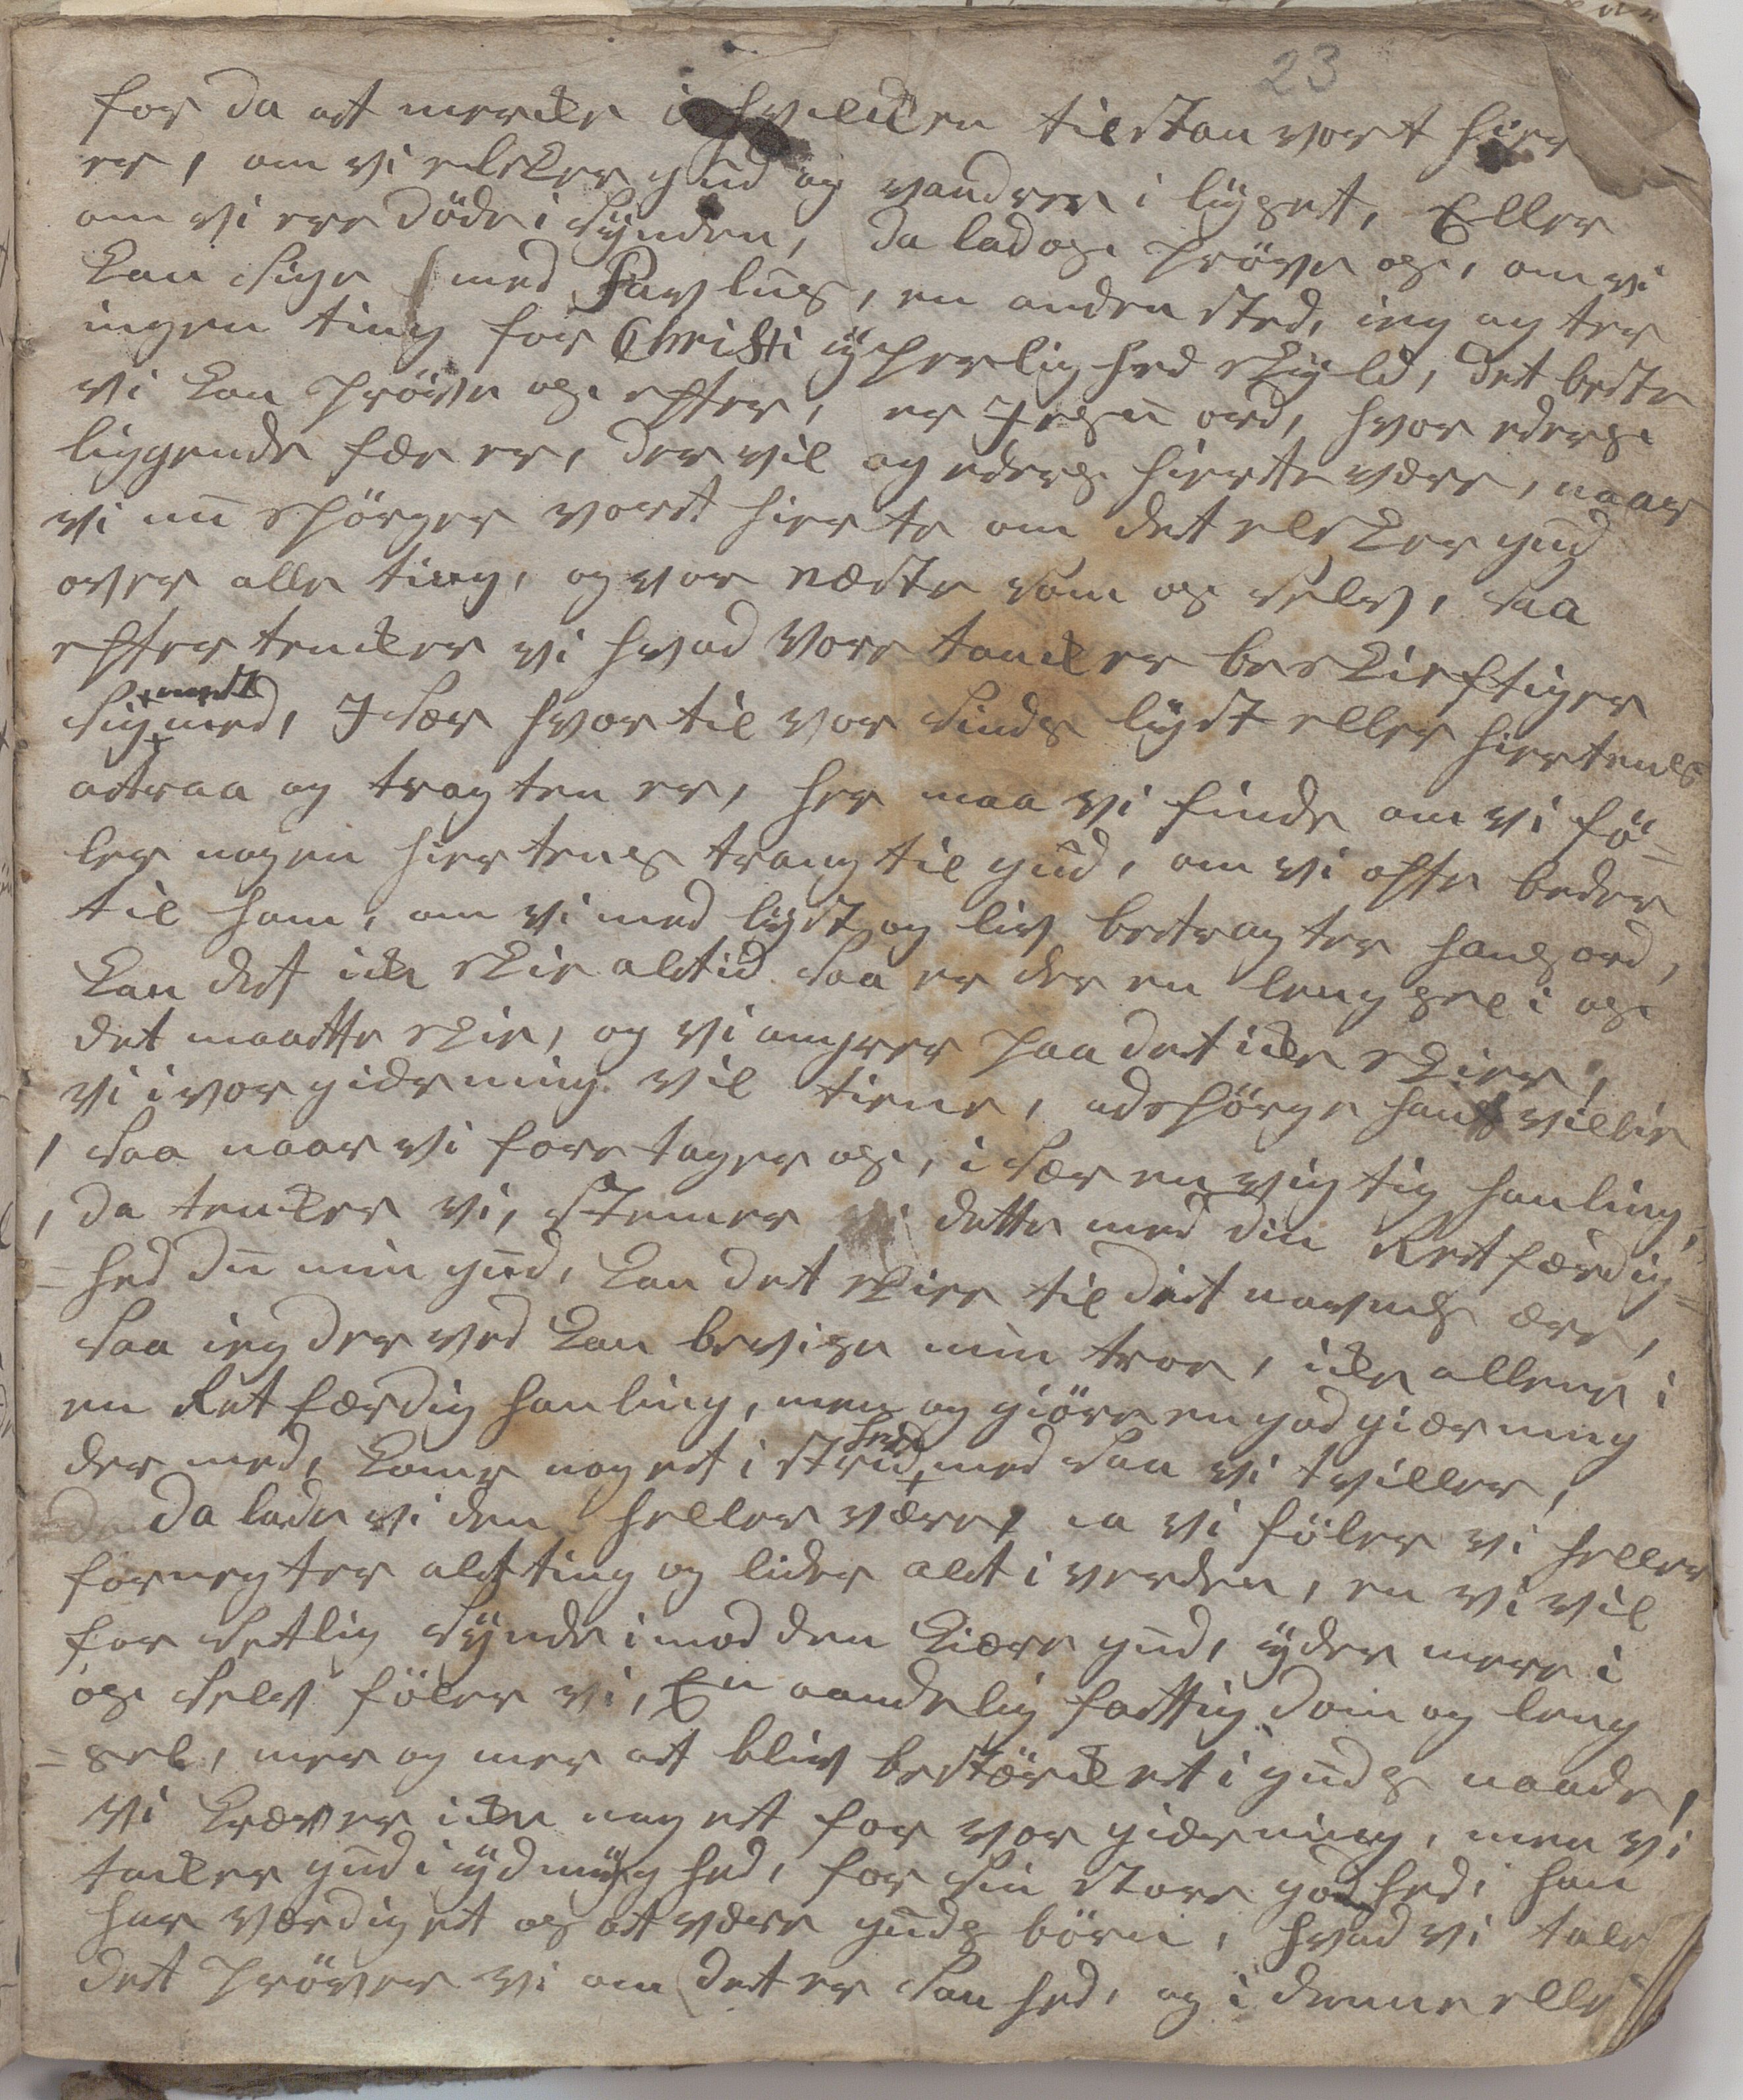 23
for da at mercke i hvilcken tilstan vort hier
er, om vi elsker gud og vandrer i lyset, Eller
om vi ere döde i sÿnden, da lad os pröve os, om vi
kan sige med Pavlus, en anden sted, ieg agter
ingen ting for Christi ÿperlighed skyld, det beste
vi kan pröve os efter, er Jesu ord, hvor eders
liggende fæe er, der vil og eders hierte være, naar
vi nu spörger vort hierte om det elsker gud
over alle ting, og vor næste som os selv, saa
eftertencker vi hvad vore tancker beskieftiger
sig mest med, Jsær hvor til vor sinds lyst eller hiertens
attraa og tragten er, her maa vi finde om vi fö=
ler nogen hiertens trang til gud, om vi ofte beder
til ham, om vi med lyst og liv betragter hans ord,
kan det icke skie altid saa er der en lengsel i os
det maatte skie, og vi angrer paa det icke skier,
vi i vor gierning vil tiene, adspörge hans villie
, saa naar vi foretager os, i sær en vigtig hanling,
, da tencker vi, stemer dette med din Retfærdig=
=hed du min gud, kan det skiee til dit navns ære,
saa ieg derved kan bevise min troe, icke allene i
en Retfærdig hanling, men og giöre en god gierning
der med, kome noget i strid her med saa vi tviller,
da lade vi den heller være, ia vi föler vi heller
fornegter alt ting og lider alt i verden, en vi vil
forsetlig sÿnde imod den kiære gud, ÿder mere i
os selv föler vi, En aandelig fattigdom og leng
=sel, mer og mer at bliv bestærcket i guds naade,
vi kræver icke noget for vor gierning, men vi
tacker gud i ÿdmÿghed, for sin store godhed, han
har værdiget os at være guds börn, hvad vi tale
det pröver vi om det er sanhed, og i denne elle